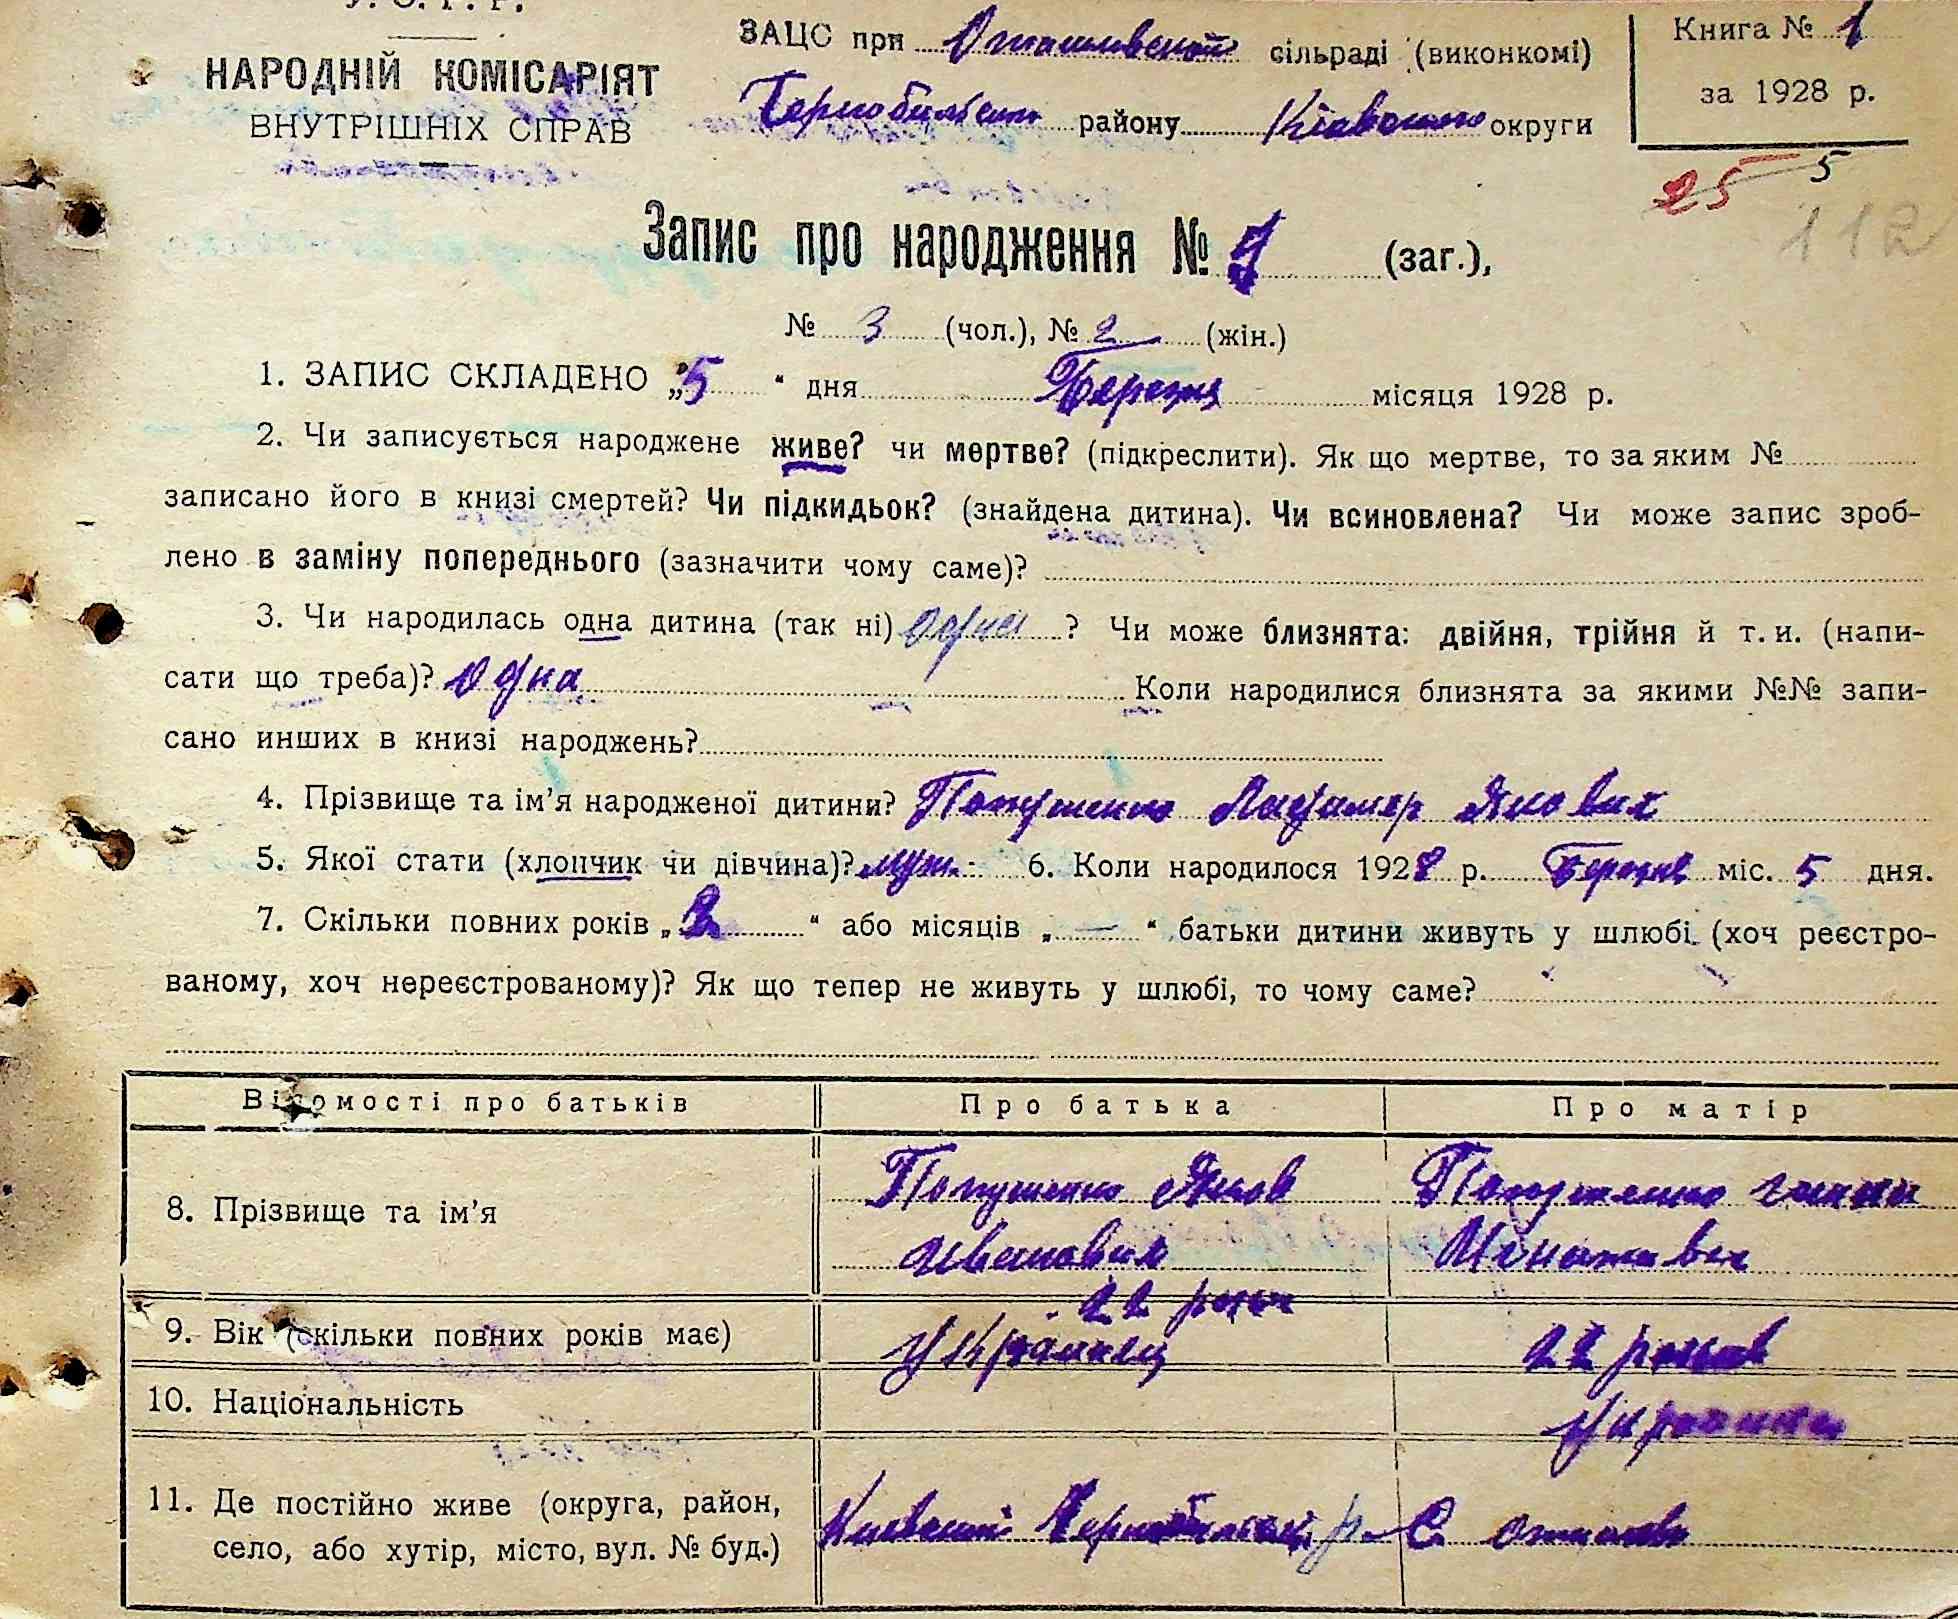 У. С. Р. Р.
НАРОДНІЙ КОМІСАРІЯТ
ВНУТРІШНІХ СПРАВ
ЗАЦС при Оташевской сільраді (виконкомі)
Чернобильского району Київського округи
Книга № 1
за 1928 р.
25 5
112
Запис про народження № (заг.),
№ 3 (чол.), № 2 (жін.)
1. ЗАПИС СКЛАДЕНО „5" дня Березня місяця 1928 р.
2. Чи записується народжене живе? чи мертве? (підкреслити). Як що мертве, то за яким №
записано його в книзі смертей? Чи підкидьок? (знайдена дитина). Чи всиновлена? Чи може запис зроб-
лено в заміну попереднього (зазначити чому саме)?
3. Чи народилась одна дитина (так ні) Одна ? Чи може близнята: двійня, трійня й т. и. (напи-
сати що треба)? Одна Коли народилися близнята за якими №№ запи-
сано инших в книзі народжень?
4. Прізвище та ім'я народженої дитини? Владимер Якович
5. Якої стати (хлопчик чи дівчина)? муж. 6. Коли народилося 1928 р. Березня міс. 5 дня.
7. Скільки повних років „2" або місяців „—" батьки дитини живуть у шлюбі (хоч реєстро-
ваному, хоч нереєстрованому)? Як що тепер не живуть у шлюбі, то чому саме?
Відомості про батьків Про батька Про матір
8. Прізвище та ім'я Яков
Ивановик
9. Вік (скільки повних років має) 22 роки 22 роков
10. Національність Українец Украинка
11. Де постійно живе (округа, район,
село, або хутір, місто, вул. № буд.) Киевский Чернобильский р. С. Оташев